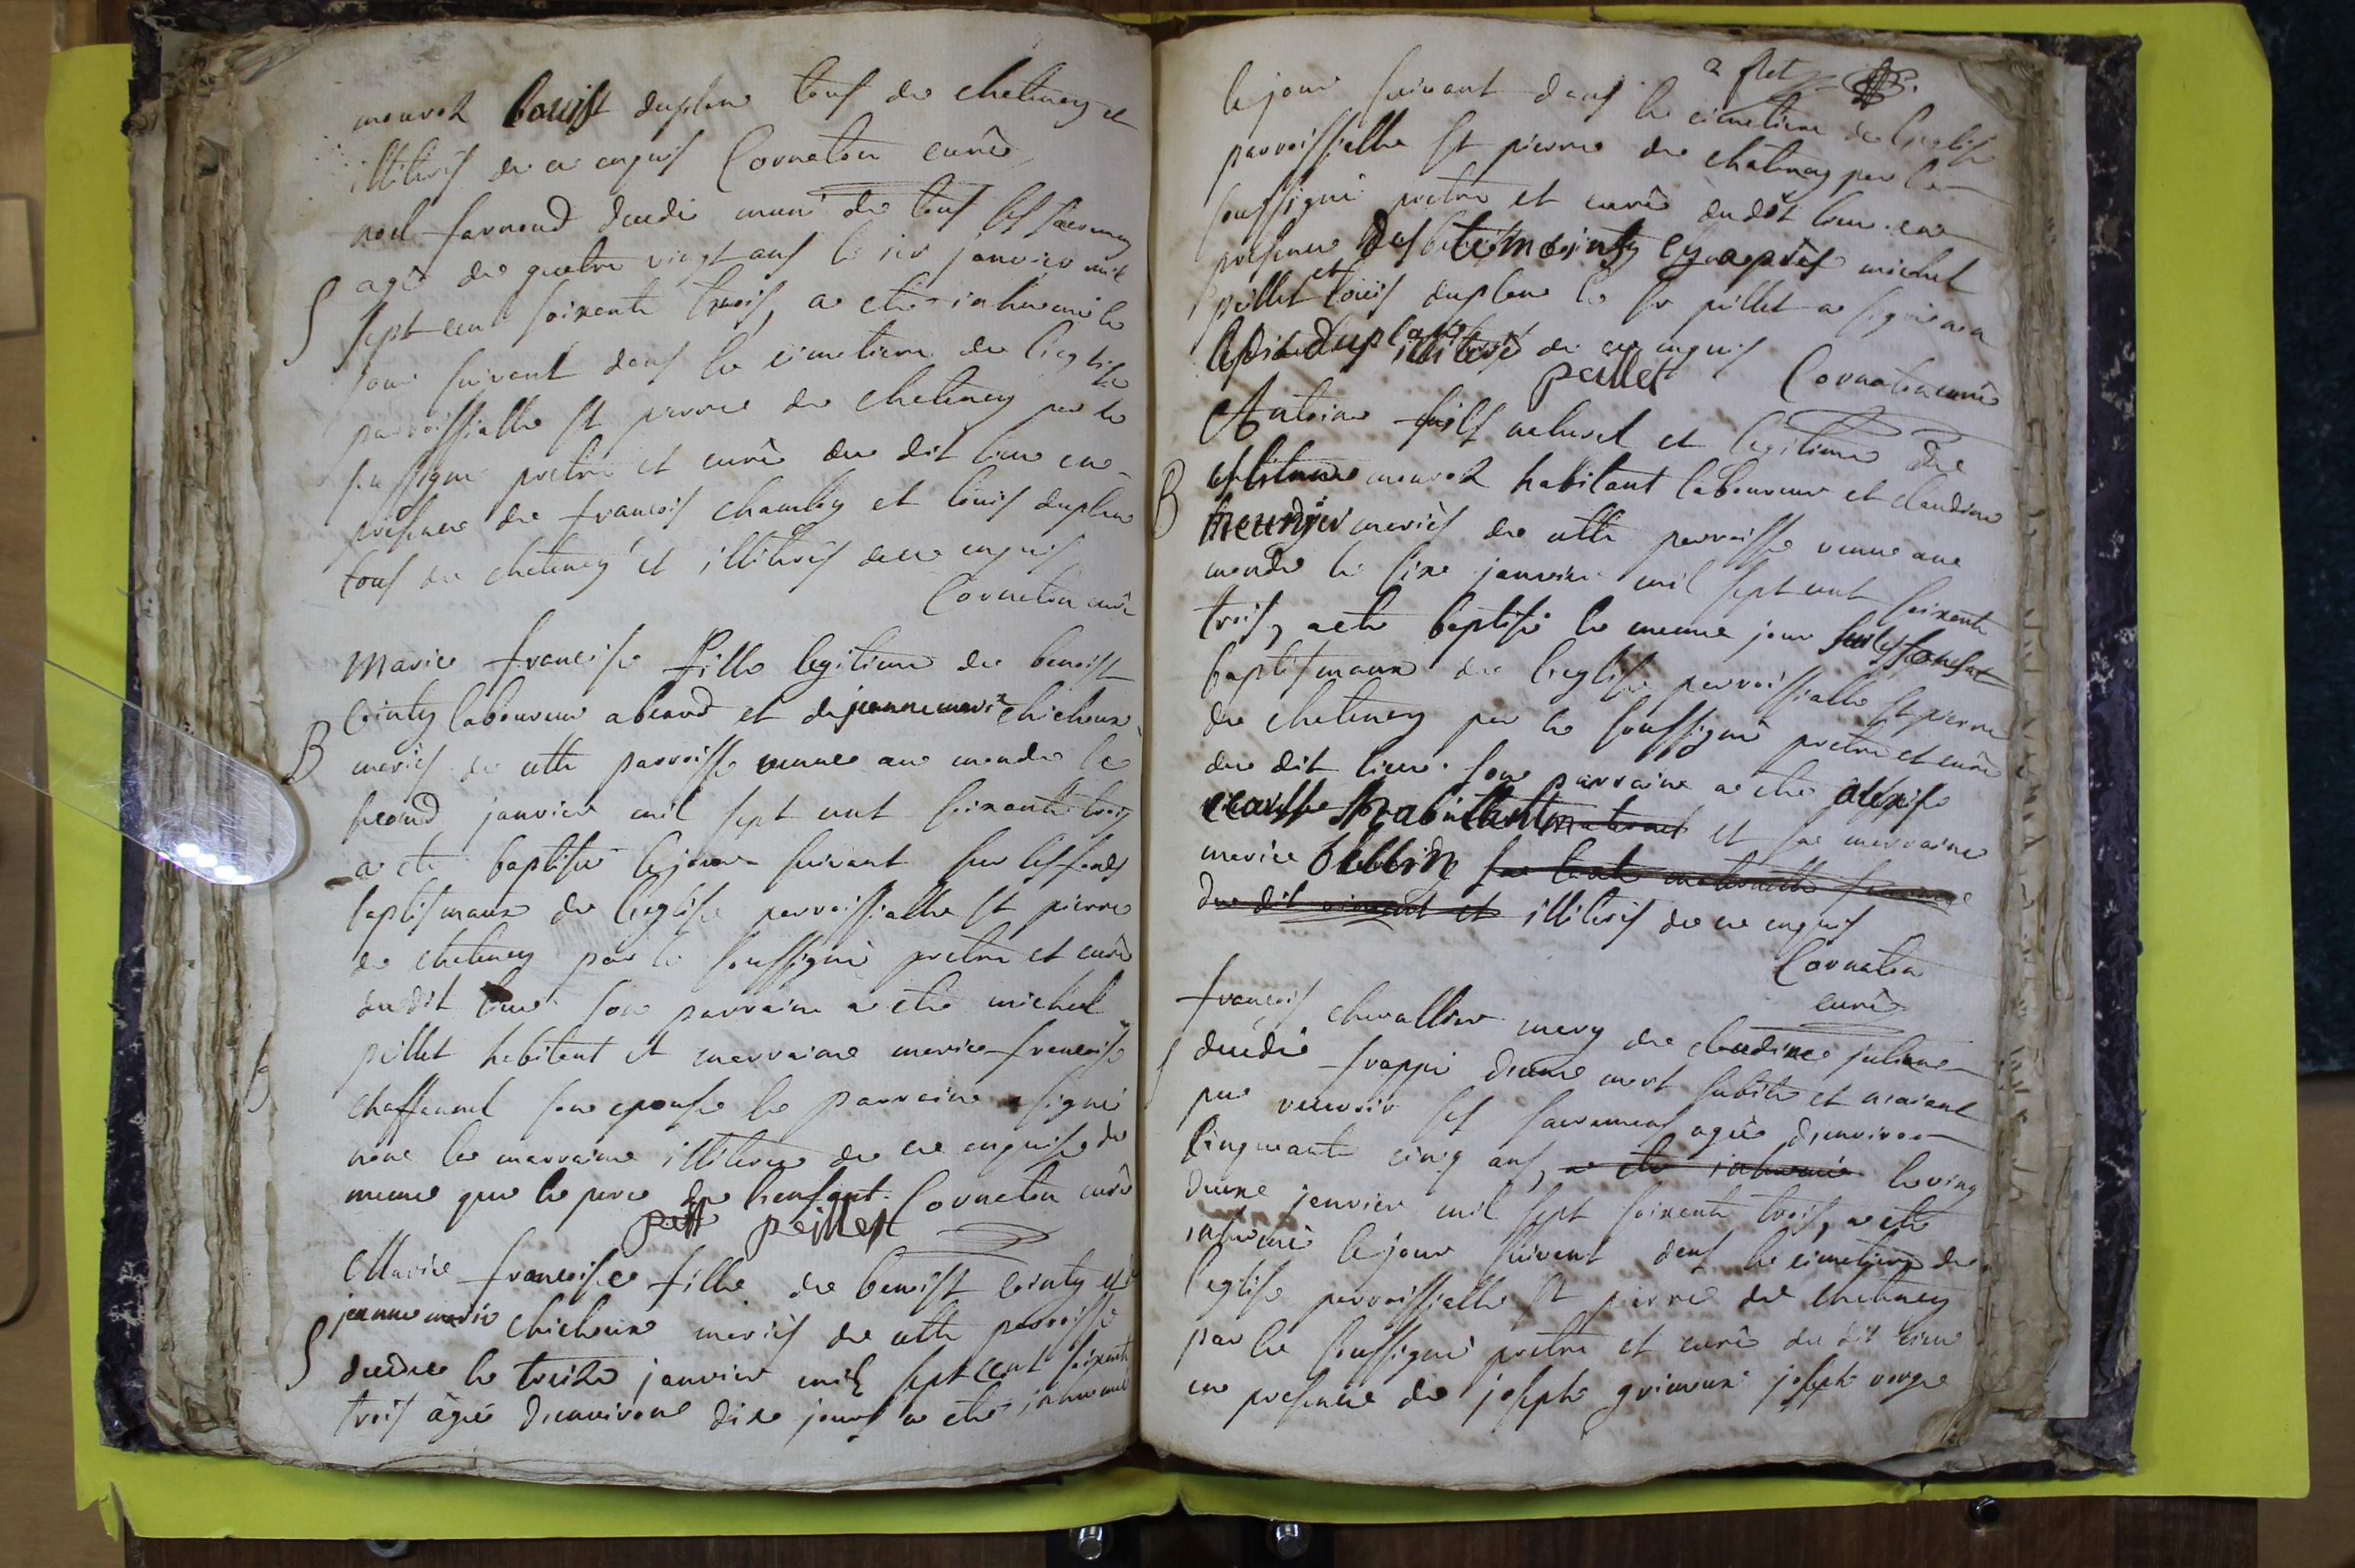 mourot louist duplane tous de chetenay et
illiterés de ce enquis Cornaton curé
noel farnoud decedé muni de tous les sacremens
S agé de quatre vingt ans le 1er janvier mil
sept cent soixente trois, a eté inhumé le
jour suivant dans le cimetiere de l'eglise
parroissialle St pierre de chetenay par le
soussigné pretre et curé du dit lieu en
presence de francois chamby et louis duplane
tous de chetenay et illiterés de ce enquis
Cornaton curé
Marie francoise fille legitime de benoist
cointy laboureur aberod et de jeanne marie chicheux
B mariés de cette parroisse venue au monde le
second janvier mil sept cent soixante trois
a eté baptisée le jour suivant sur les fonds
baptismaux de l'eglise parroissialle St pierre
de chetenay par le soussigné pretre et curé
du dit lieu son parrain a eté michel
peillet habitant et marraine marie francoise
chaffannel son epouse le parrain a signé
non la marraine illiterée de ce enquise de
meme que le pere de l'enfant. Cornaton curé
peillet
Marie francoise fille de benoist cointy et
jeanne marie chicheux mariés de cette parroisse
S decedée le treize janvier mil sept cent soixente
trois agée d'environ dix jours a eté inhumée
le jour suivant dans le cimetiere de l'eglise
parroissialle St pierre de chatenay par le
soussigné pretre et curé du dit lieu en
presence des temoints cy apres michel
peillet et louis duplane le sr peillet a signé non
le dit duplane illiteré de ce enquis
peillet Cornaton curé
Antoine fils naturel et legitime de
mourot habitant laboureur et claudine
B meunjer mariés de cette parroisse venu au
monde le six janvier mil sept cent soixente
trois, a eté baptisé le meme jour sur les fonds
baptismaux de l'eglise parroissialle St pierre
de chetenay par le soussigné pretre et curé
du dit lieu. son parrain a eté
habitant maternel et sa marraine
marie sa tante maternelle femme
du dit vincent et illiterés de ce enquis
Cornaton
curé
francois chevallier mary de claudine juliane
S decedé frappé d'une mort subite et n'aiant
pu recevoir les sacremens agée d'environ
cinquante cinq ans, a eté inhumé le ving
deuxe janvier mil sept soixente trois, a eté
inhumé le jour suivent dans le cimetiere de
l'eglise parroissialle St pierre de chetenay
par le soussigné pretre et curé du dit lieu
en presence de joseph grimoux joseph vorge